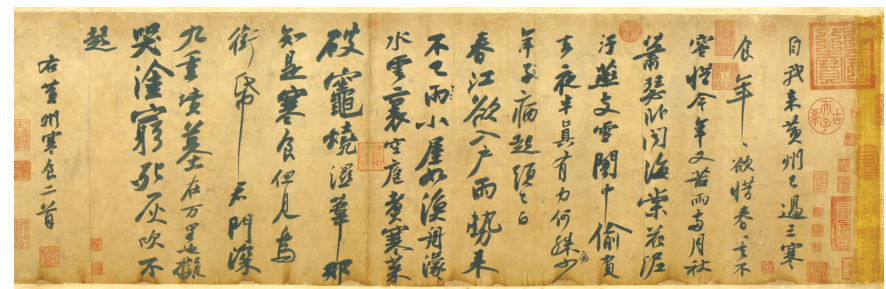 自我來黃州已過三寒
食年々欲惜春々去不
容惜今年又苦雨兩月秋
蕭瑟卧聞海棠花泥
汙燕支雪闇中偷負
去夜半真有力何殊少病
年子病起須已白
春江欲入户雨勢來
不已雨小屋如漁舟濛々
水雲裏空庖煮寒菜
破竈燒濕葦那
知是寒食但見烏
銜帋君門深
九重墳墓在万里也擬
哭塗窮死灰吹不
起
右黃州寒食二首
古希天子